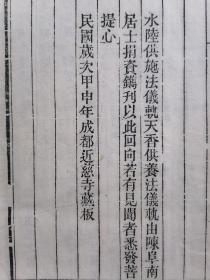 水陸供施法儀軌天香供養法儀軌由陳阜南
居士捐資鐫刊以此回向若有見聞者悉發菩
提心
民國歲次甲申年成都近慈寺藏板